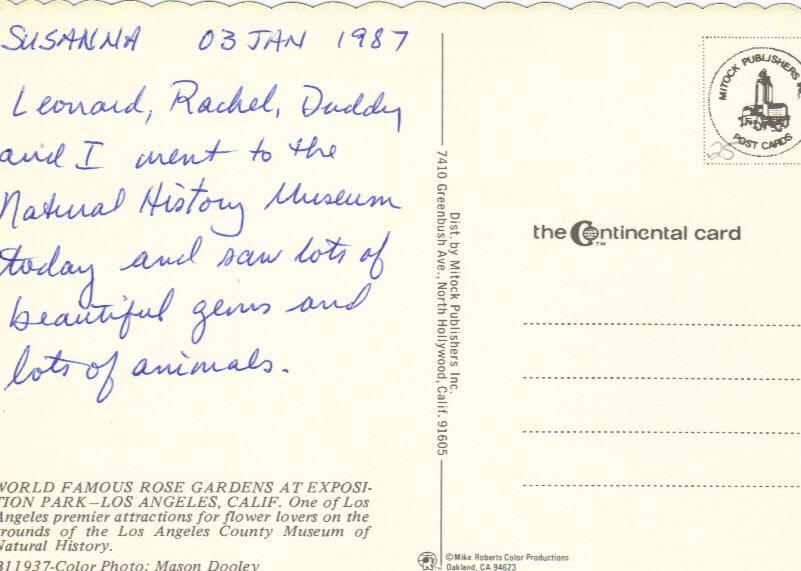 SUSANNA 03 JAN 1987
Leonard, Rachel, Daddy
and I went to the
Natural History Museum
today and saw lots of
beautiful gems and
lots of animals.
WORLD FAMOUS ROSE GARDENS AT EXPOSI-
TION PARK—LOS ANGELES, CALIF. One of Los
Angeles premier attractions for flower lovers on the
grounds of the Los Angeles County Museum of
Natural History.
B11937-Color Photo: Mason Dooley
Dist. by Mitock Publishers Inc.
7410 Greenbush Ave., North Hollywood, Calif. 91605
MITOCK PUBLISHERS INC.
POST CARDS
25
the Continental card
TM
©Mike Roberts Color Productions
Oakland, CA 94623